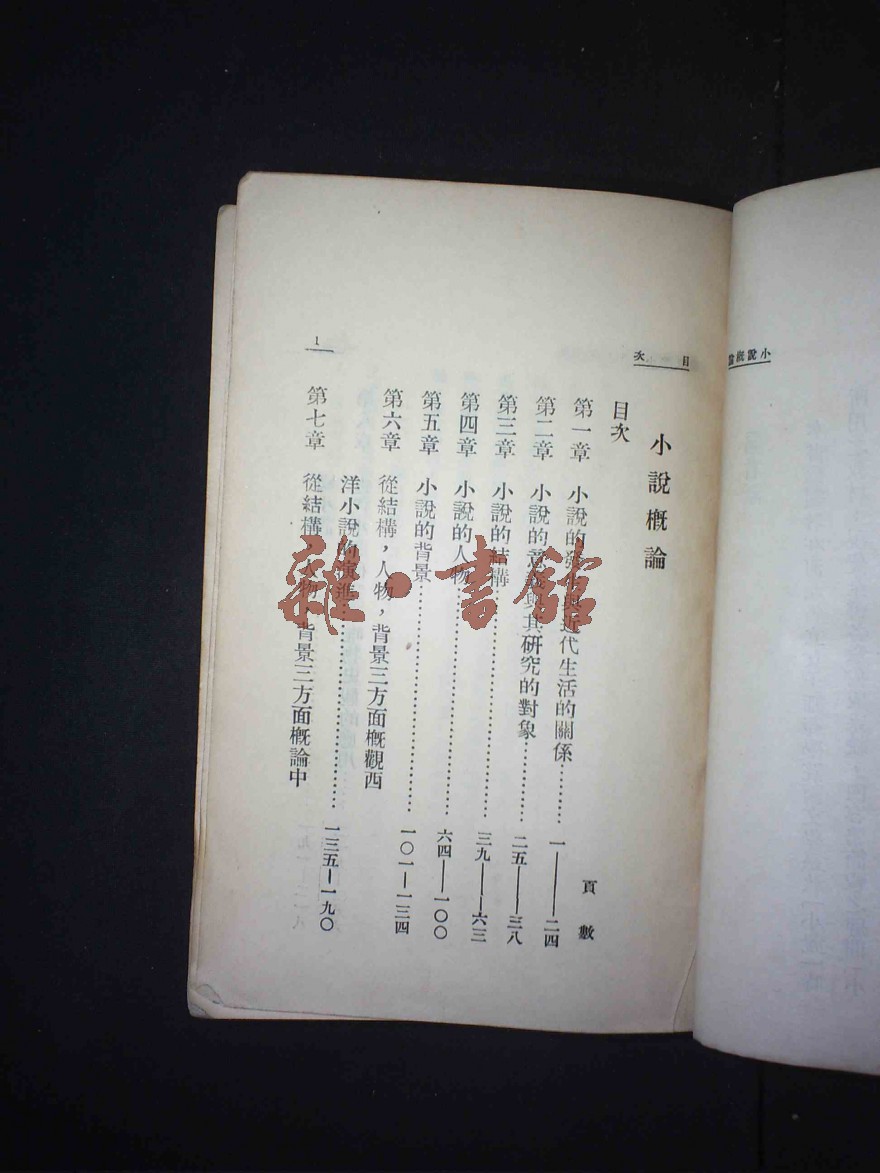 小說概論
目次
小說概論
目次
頁數
第一章 小說的發與近代生活的關係………一——二四
第二章 小說的意義與其研究的對象………二五——三八
第三章 小說的結構………三九——六三
第四章 小說的人物………六四—一〇〇
第五章 小說的背景………一〇一—一三四
第六章 從結構，人物，背景三方面概觀西
洋小說的演進………一三五—一九〇
第七章 從結構，人物，背景三方面概論中
1
雜·書館